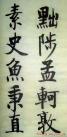 黜陟孟軻敦
素史魚秉直